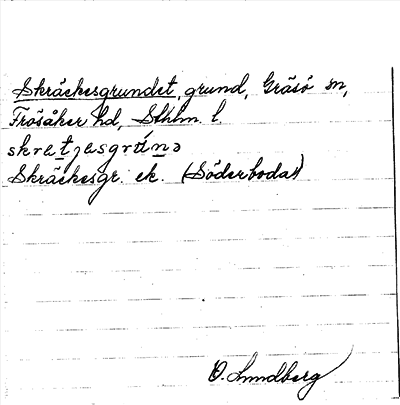 Skräckesgrundet, grund, Gräsö sn,
Frösåker hd, Sthlm. l.
skratjasgrúnə
Skräckesgr. ek. (Söderboda)
O. Lundberg